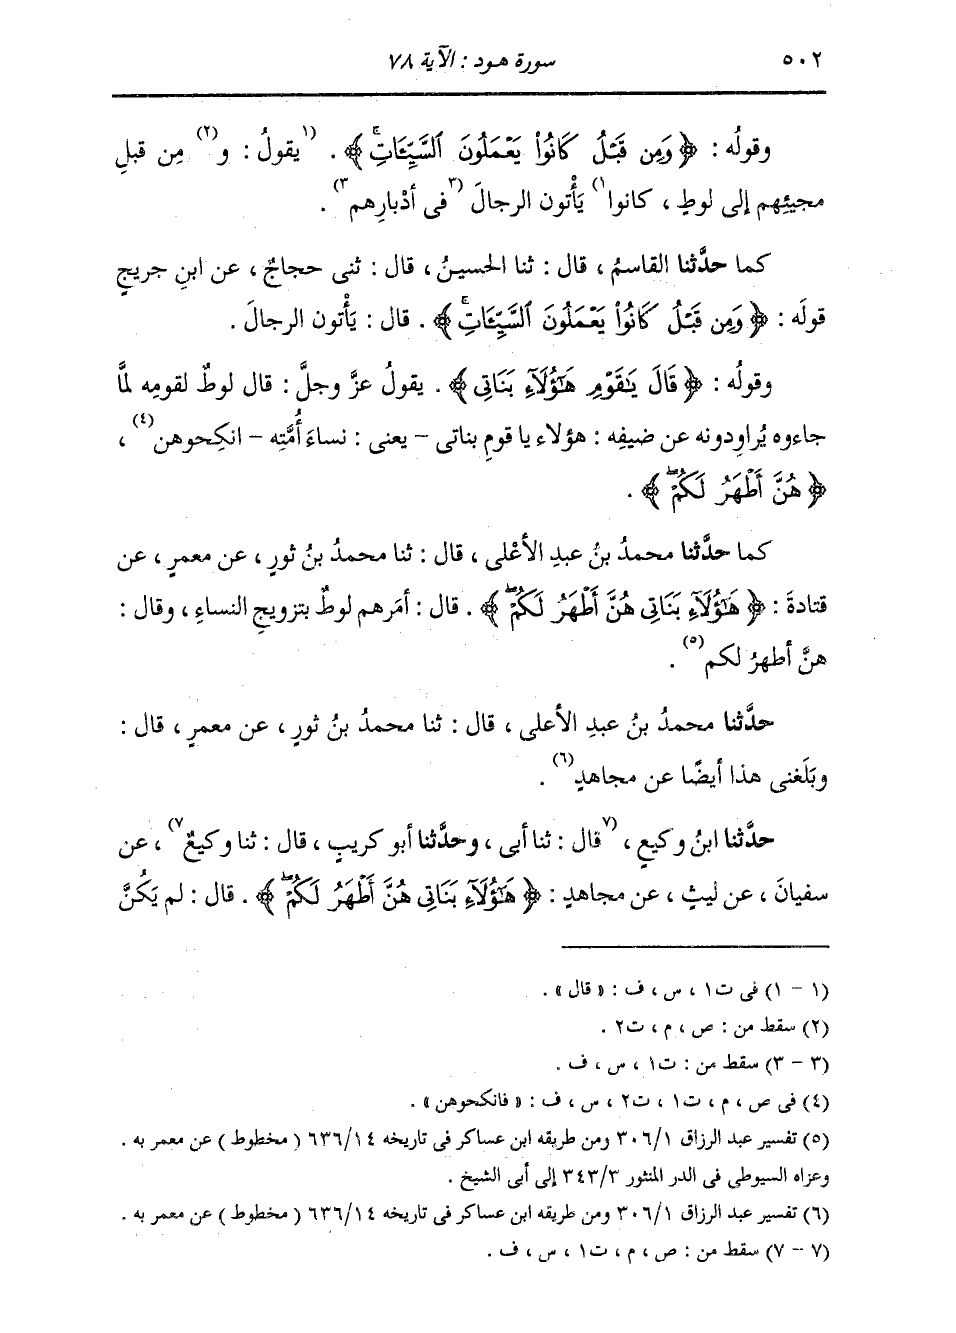 ٥٠٢ سورة هود : الآية ٧٨
وقولُه : ﴿ وَمِن قَبْلُ كَانُوا۟ يَعْمَلُونَ ٱلسَّيِّـَٔاتِۚ ﴾ . (١يقولُ : و(٢) مِن قبلِ
مجيئِهم إلى لوطٍ ، كانوا١) يَأْتون الرجالَ (٣فى أدْبارِهم٣) .
كما حدَّثنا القاسمُ ، قال : ثنا الحسينُ ، قال : ثنى حجاجٌ ، عن ابنِ جريجٍ
قولَه : ﴿ وَمِن قَبْلُ كَانُوا۟ يَعْمَلُونَ ٱلسَّيِّـَٔاتِۚ ﴾ . قال : يَأْتون الرجالَ .
وقولُه : ﴿ قَالَ يَـٰقَوْمِ هَـٰٓؤُلَآءِ بَنَاتِى ﴾ . يقولُ عزَّ وجلَّ : قال لوطٌ لقومِه لمَّا
جاءوه يُراوِدونه عن ضيفِه : هؤلاء يا قومِ بناتى – يعنى : نساءَ أُمَّتِه – انكِحوهن(٤) ،
﴿ هُنَّ أَطْهَرُ لَكُمْۖ ﴾ .
كما حدَّثنا محمدُ بنُ عبدِ الأعْلى ، قال : ثنا محمدُ بنُ ثورٍ ، عن معمرٍ ، عن
قتادةَ : ﴿ هَـٰٓؤُلَآءِ بَنَاتِى هُنَّ أَطْهَرُ لَكُمْۖ ﴾ . قال : أمَرهم لوطٌ بتزويجِ النساءِ ، وقال :
هنَّ أطهرُ لكم(٥) .
حدَّثنا محمدُ بنُ عبدِ الأعلى ، قال : ثنا محمدُ بنُ ثورٍ ، عن معمرٍ ، قال :
وبَلَغنى هذا أيضًا عن مجاهدٍ(٦) .
حدَّثنا ابنُ وكيعٍ ، (٧قال : ثنا أبى ، وحدَّثنا أبو كريبٍ ، قال : ثنا وكيعٌ٧) ، عن
سفيانَ ، عن ليثٍ ، عن مجاهدٍ : ﴿ هَـٰٓؤُلَآءِ بَنَاتِى هُنَّ أَطْهَرُ لَكُمْۖ ﴾ . قال : لم يَكُنَّ
(١ – ١) فى ت١ ، س ، ف : « قال » .
(٢) سقط من : ص ، م ، ت٢ .
(٣ – ٣) سقط من : ت١ ، س ، ف .
(٤) فى ص ، م ، ت١ ، ت٢ ، س ، ف : « فانكحوهن » .
(٥) تفسير عبد الرزاق ٣٠٦/١ ومن طريقه ابن عساكر فى تاريخه ٦٣٦/١٤ ( مخطوط ) عن معمر به .
وعزاه السيوطى فى الدر المنثور ٣٤٣/٣ إلى أبى الشيخ .
(٦) تفسير عبد الرزاق ٣٠٦/١ ومن طريقه ابن عساكر فى تاريخه ٦٣٦/١٤ ( مخطوط ) عن معمر به .
(٧ – ٧) سقط من : ص ، م ، ت١ ، س ، ف .